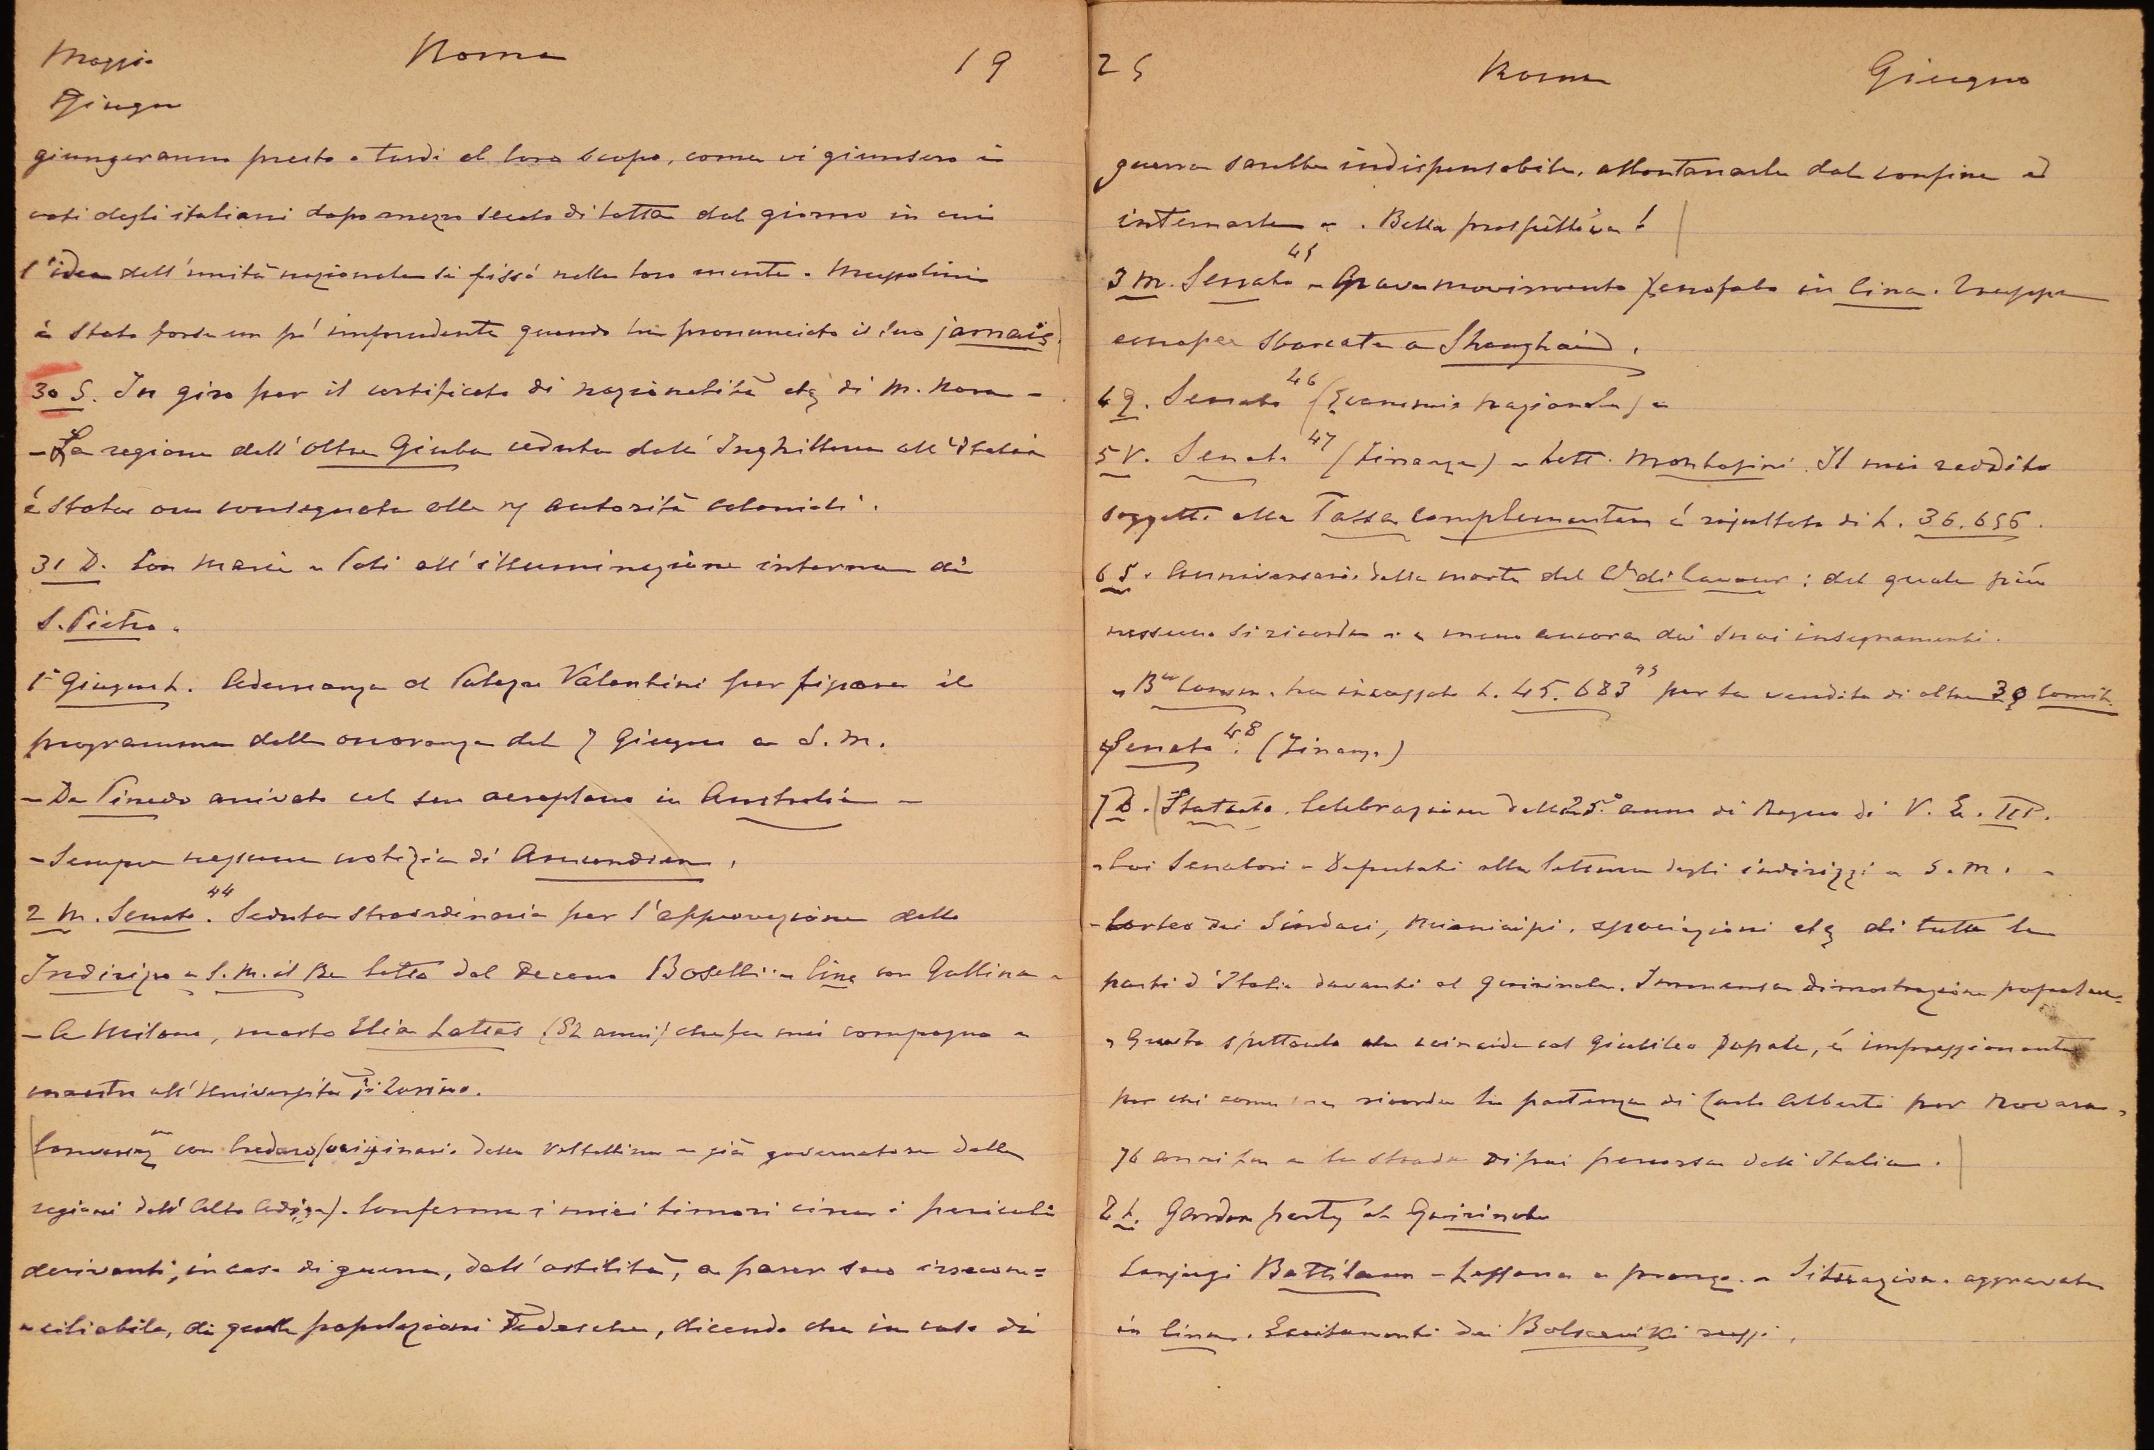 Maggio Roma 19
Giugno
giungeranno presto o tardi al loro scopo, come vi giunsero i
voti degli italiani dopo mezzo secolo di lotta dal giorno in cui
l'idea dell'unità nazionale si fissò nella loro mente. Mussolini
è stato forse un po' imprudente quando ha pronunciato il suo jamais.
30 S. In giro per il certificato di nazionalità etc di M. Nora -
- La regione dell'Oltre Giuba ceduta dall'Inghilterra all'Italia
è stata ora consegnata alle autorità coloniali.
31 D. Con Maria a all'illuminazione interna di
S. Pietro.
1° Giugno L. Adunanza al Palazzo Valentini per fissare il
programma delle onoranze del 7 Giugno a S. M.
- De Pinedo arrivato col suo aeroplano in Australia -
- Sempre nessuna notizia di Amundsen.
2 M. Senato 44. Seduta straordinaria per l'approvazione dello
Indirizzo a S. M. il Re letto dal decano Boselli - con Gallina -
- A Milano, morto Elia Lattes (82 anni) che fu mio compagno e
maestro all'Università di Torino.
Conversaz con Credaro (originario della Valtellina e già governatore delle
regioni dell'Alto Adige). Conferma i miei timori circa i pericoli
derivanti, in caso di guerra, dall'ostilità, a parer suo irrecon=
=ciliabile, di quelle popolazioni Tedesche, dicendo che in caso di
25 Roma Giugno
guerra sarebbe indispensabile, allontanarle dal confine ed
internarle. Bella prospettiva!
3 M. Senato 45 - Grave movimento xenofobo in Cina. Truppe
europee sbarcate a Shanghai.
4 G. Senato 46 (Economia nazionale) -
5 V. Senato 47 (Finanze) - Lett. Montasini. Il mio reddito
soggetto alla Tassa complementare è risultato di L. 36.656.
6 S. Anniversario della morte del Cte di Cavour; del quale più
nessuno si ricorda e meno ancora dei suoi insegnamenti.
- Bca Comm. ha incassato L. 45.683 95 per la vendita di altre 30 Comit.
Senato 48. (Finanze)
7 D. Statuto. Celebrazione del 25° anno di Regno di V. E. III.
- Coi Senatori e Deputati alla lettura degli indirizzi a S. M. -
- Corteo dei Sindaci, Municipi, associazioni etc di tutte le
parti d'Italia davanti al Quirinale. Immensa dimostrazione popolare.
- Questo spettacolo che coincide col Giubileo Papale, è impressionante
per chi come me ricorda la partenza di Carlo Alberto per Novara,
76 anni fa e la strada di poi percorsa dall'Italia.
8 L. Garden party al Quirinale
Coniugi Battilana - Lessona a pranzo. - Situazione aggravata
in Cina. Eccitamenti dei Bolsceviki russi.